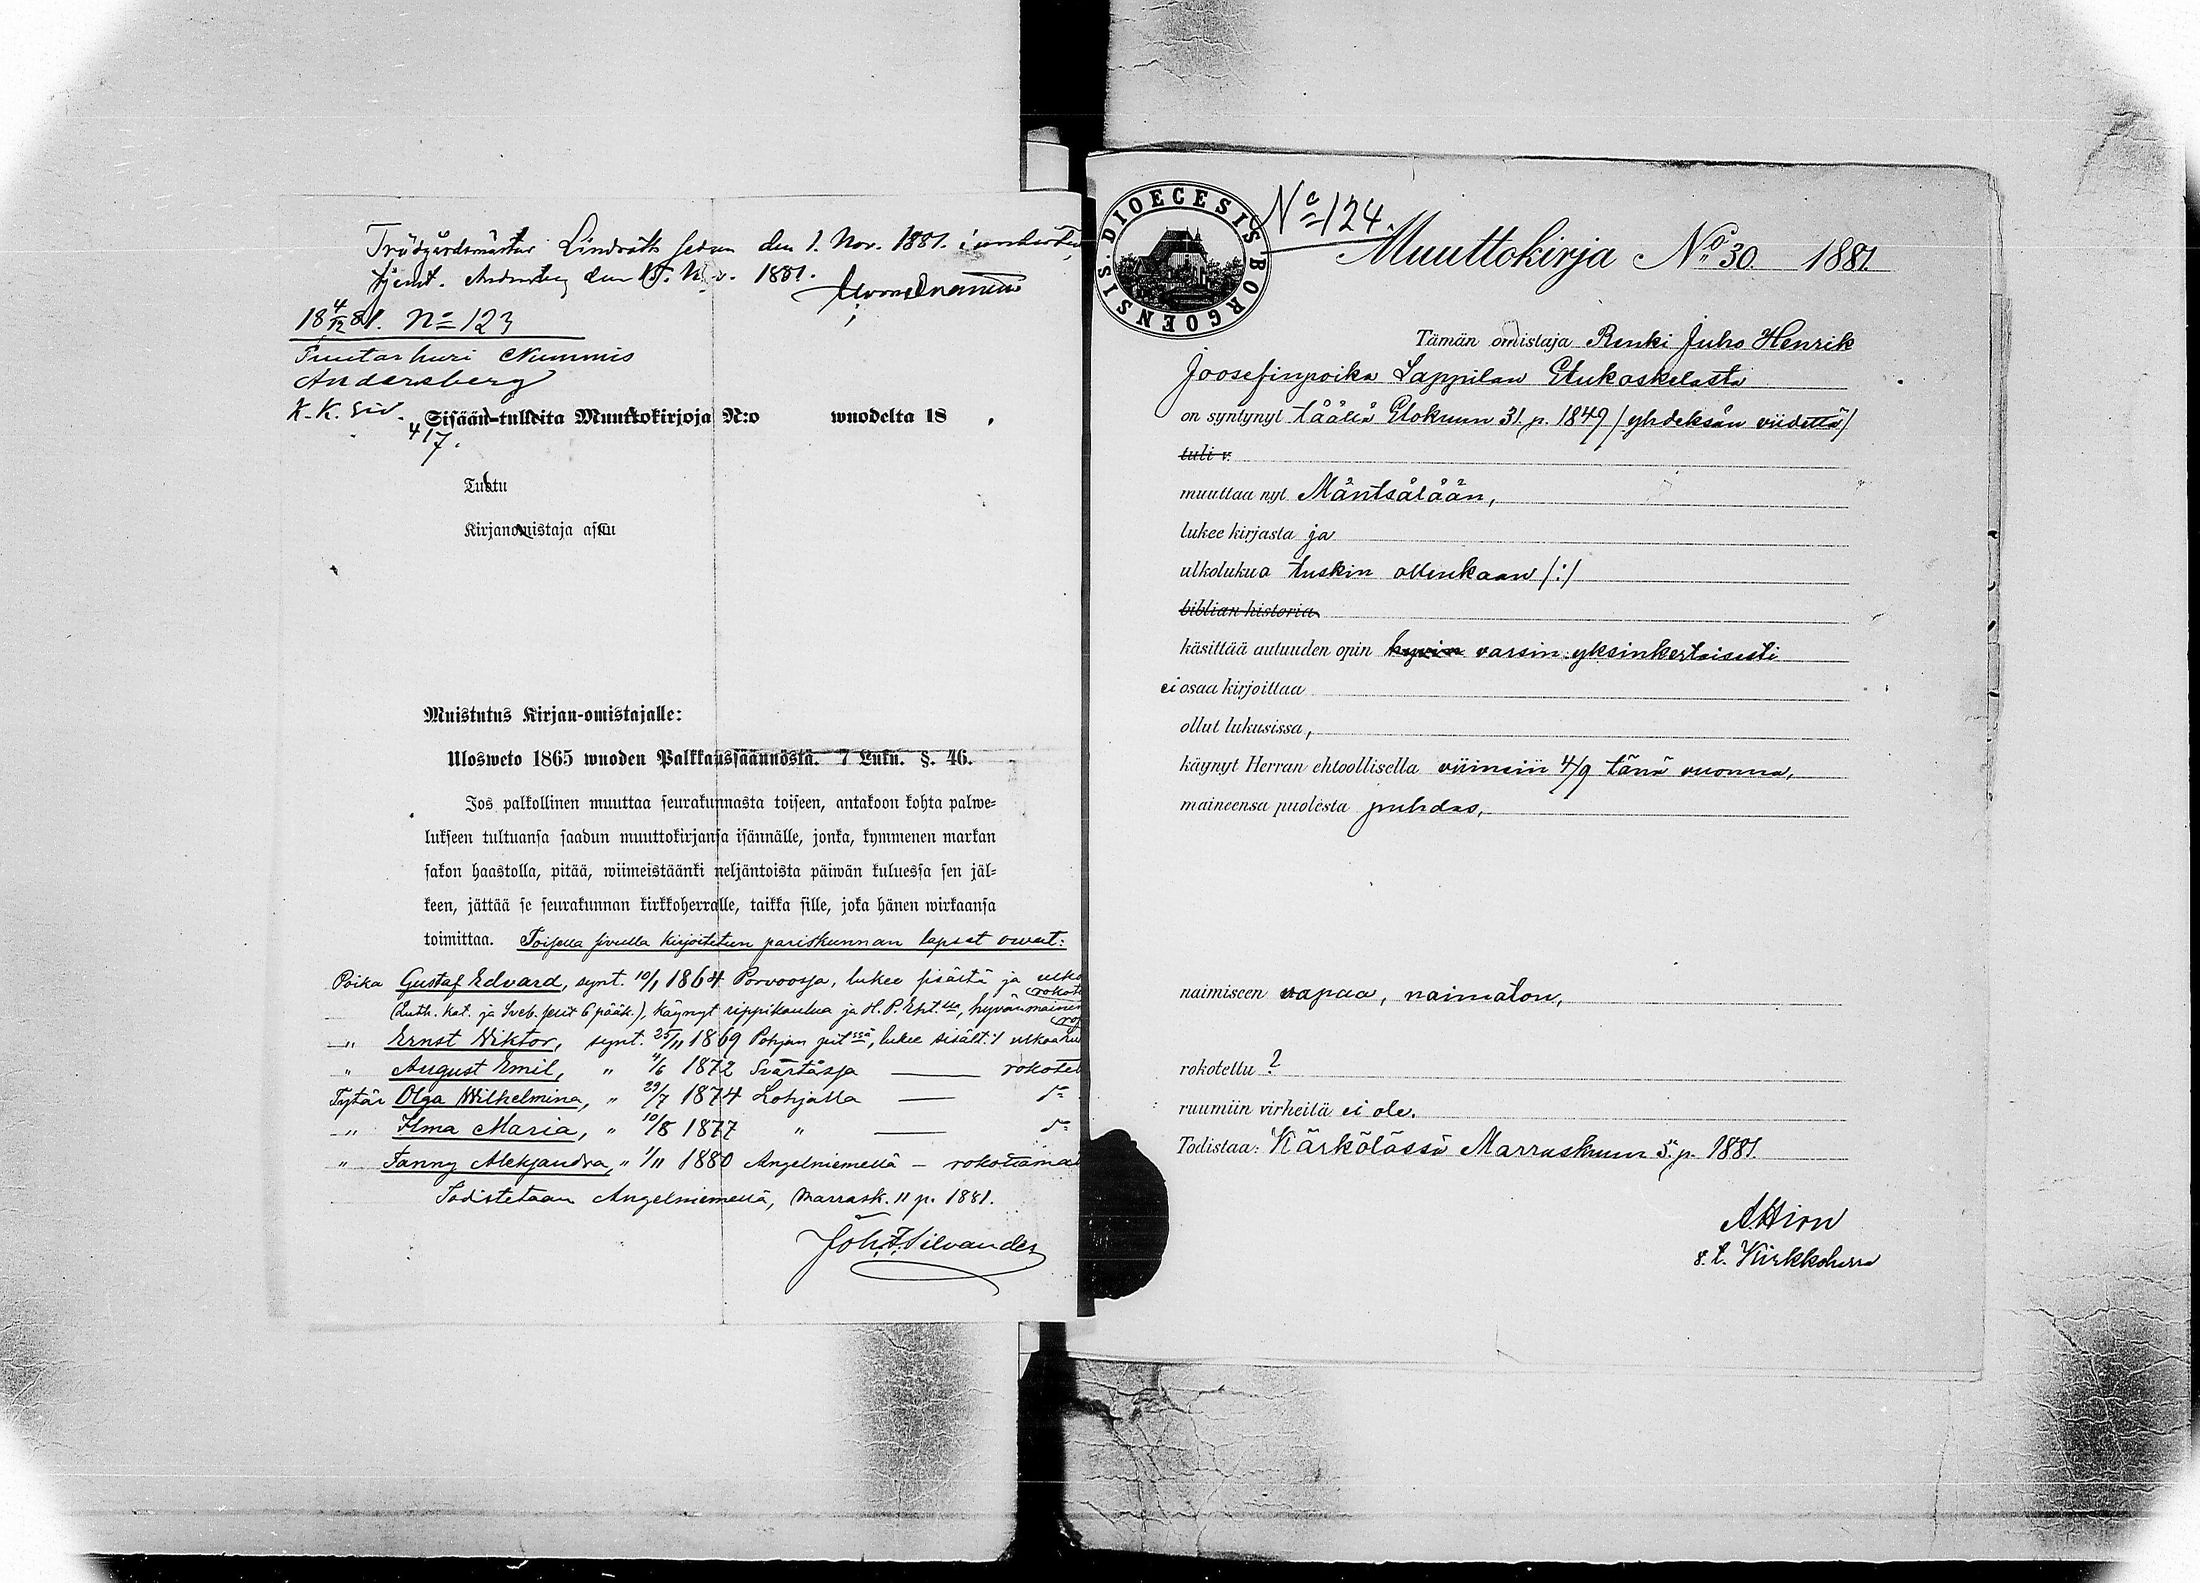 Trädgårdsmästar Lindroth sedan den 1. Nov. 1881. i
tjenst. den 15. Nov. 1881.
18 4/12 81. No 123
Puutarhuri Nummis
Andersberg
K. K. siv.
417.
Sisään-tulleita Muuttokirjoja N:o wuodelta 18 .
Tuttu
Kirjanomistaja asuu
Muistutus Kirjan-omistajalle:
Ulosweto 1865 wuoden Palkkaussäännöstä. 7 Luku. §. 46.
Jos palkollinen muuttaa seurakunnasta toiseen, antakoon kohta palwe-
lukseen tultuansa saadun muuttokirjansa isännälle, jonka, kymmenen markan
sakon haastolla, pitää, wiimeistäänki neljäntoista päiwän kuluessa sen jäl-
keen, jättää se seurakunnan kirkkoherralle, taikka sille, joka hänen wirkaansa
toimittaa. Toisella sivulla kirjoitetun pariskunnan lapset ovat:
Poika Gustaf Edvard, synt. 10/1 1864 Porvoossa, lukee sisältä ja ulko
(Luth. kat. ja Sveb. selit 6 pääk.), käynyt rippikoulua ja H. P. Eht.lla, hyvänmaine
" Ernst Viktor, synt. 25/11 1869 Pohjan pit:ssä, lukee sisält. ulkoaku
" August Emil, " 4/6 1872 Svartåssa — rokotet
Tytär Olga Wilhelmina, " 29/7 1874 Lohjalla — d:o
" Ilma Maria, " 10/8 1877 " — d:o
" Fanny Aleksandra, " 1/11 1880 Angelniemellä - rokottamat
Todistetaan Angelniemellä, Marrask. 11 p. 1881.
Joh. F. Silvander
S. DIOECESIS BORGOENSIS
No 124.
Muuttokirja No 30. 1881.
Tämän omistaja Renki Juho Henrik
Joosefinpoika Lappilan Etukoskelasta
on syntynyt täällä Elokuun 31. p. 1849 / yhdeksän viidettä /
tuli v.
muuttaa nyt Mäntsälään,
lukee kirjasta ja
ulkolukua tuskin ollenkaan /:/
biblian historia
käsittää autuuden opin hyvin varsin yksinkertaisesti
ei osaa kirjoittaa
ollut lukusissa,
käynyt Herran ehtoollisella viimein 4/9 tänä vuonna,
maineensa puolesta puhdas,
naimiseen vapaa, naimaton,
rokotettu ?
ruumiin virheitä ei ole.
Todistaa: Kärkölässä Marraskuun 5. p. 1881.
A Hirn
v. t. Kirkkoherra